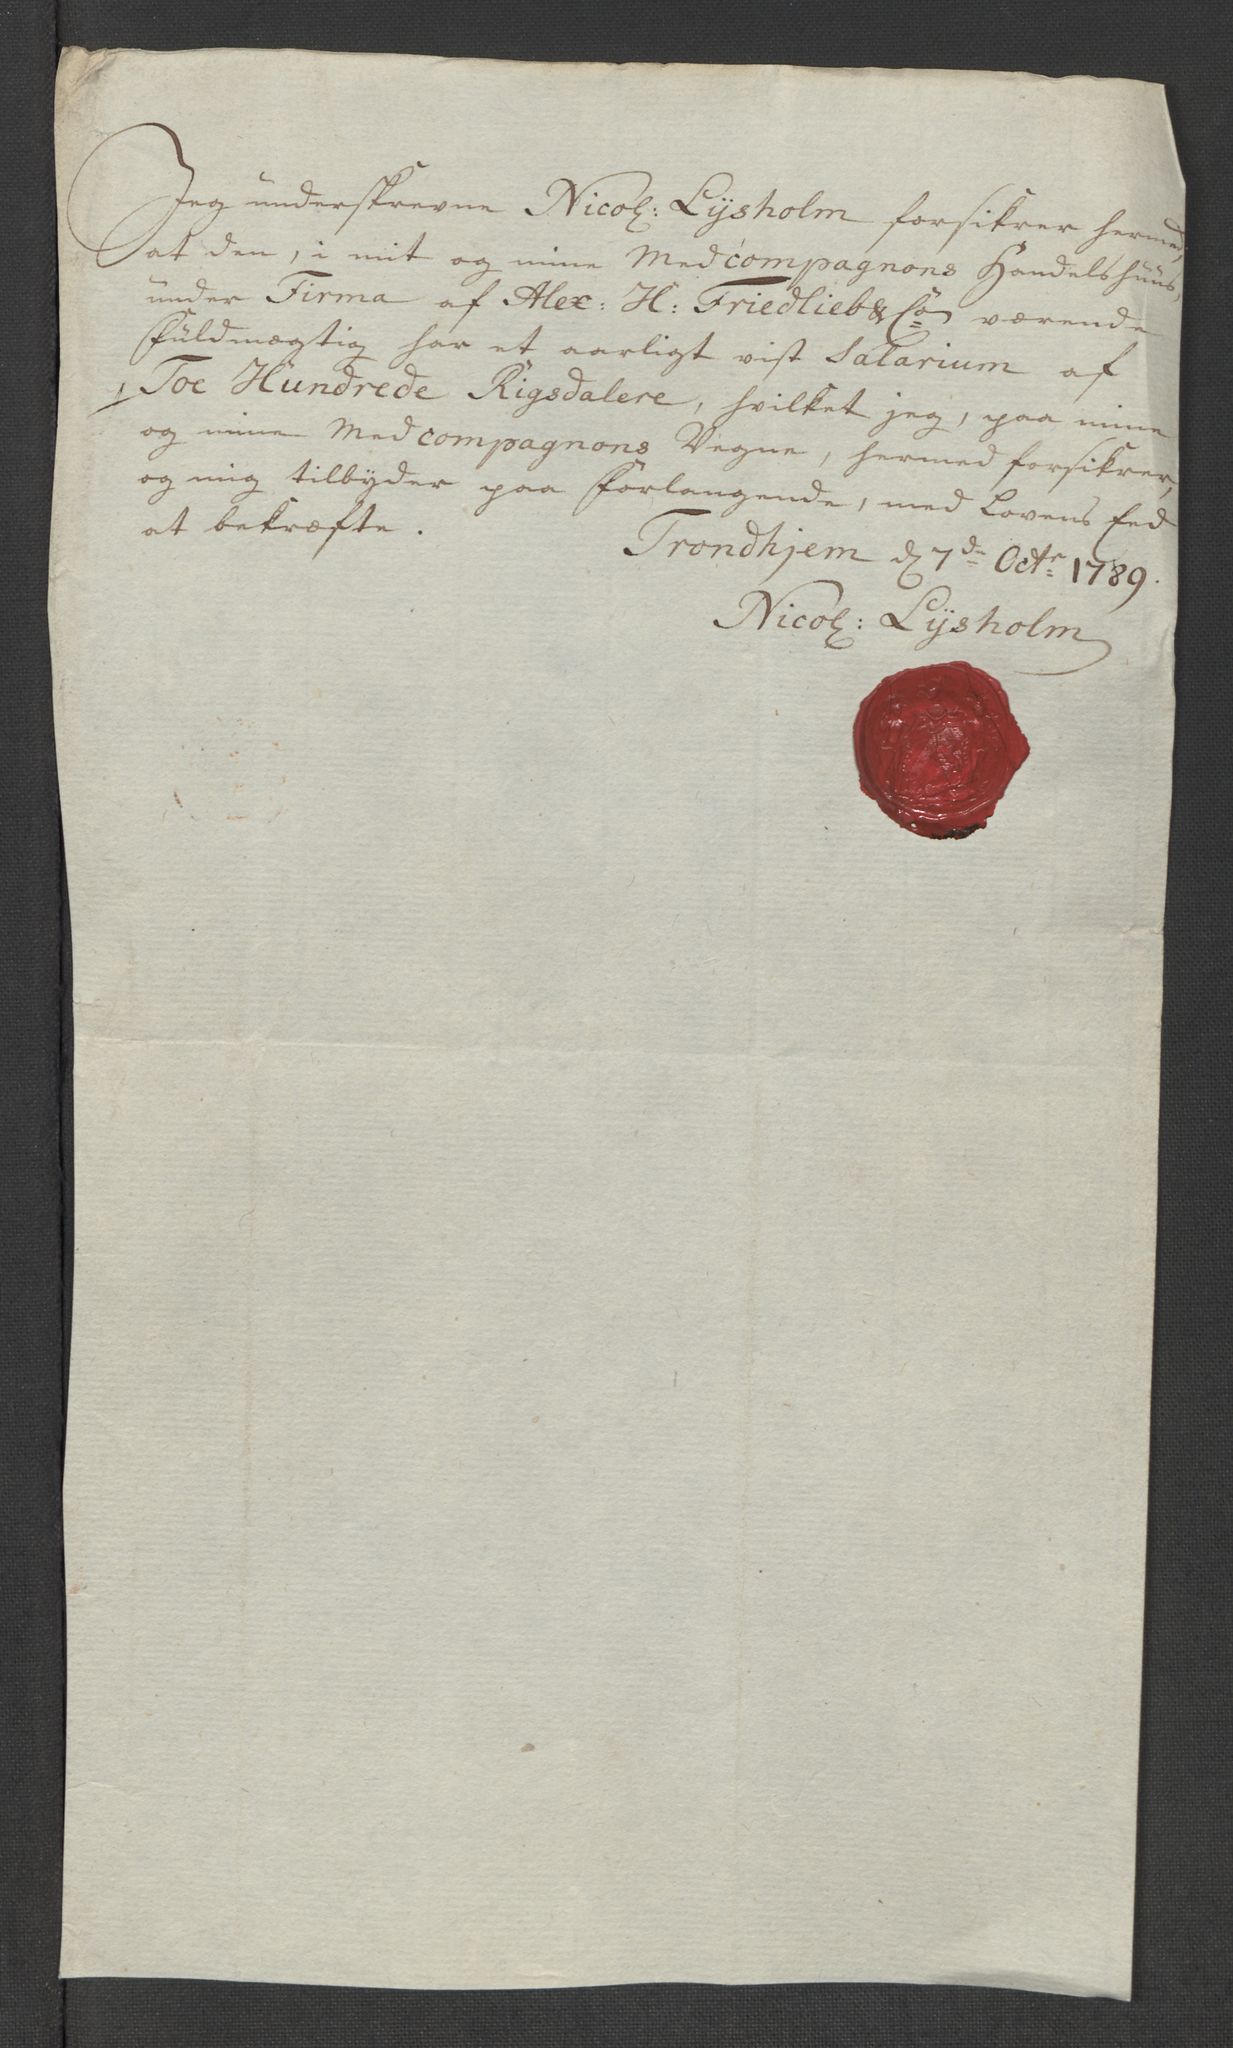 Jeg underskrevne Nicol: Lysholm forsikrer hermed,
at den, i mit og mine Medcompagnons Handelshuus,
under Firma af Alex: H: Friedlieb & Co værende
Fuldmægtig har et aarligt vist Salarium af
Toe Hundrede Rigsdalere, hvilket jeg, paa mine
og mine Medcompagnons Vegne, hermed forsikrer,
og mig tilbyder paa Forlangende, med Lovens Eed
at bekræfte.
Trondhjem d 7de Octr 1789.
Nicol: Lysholm